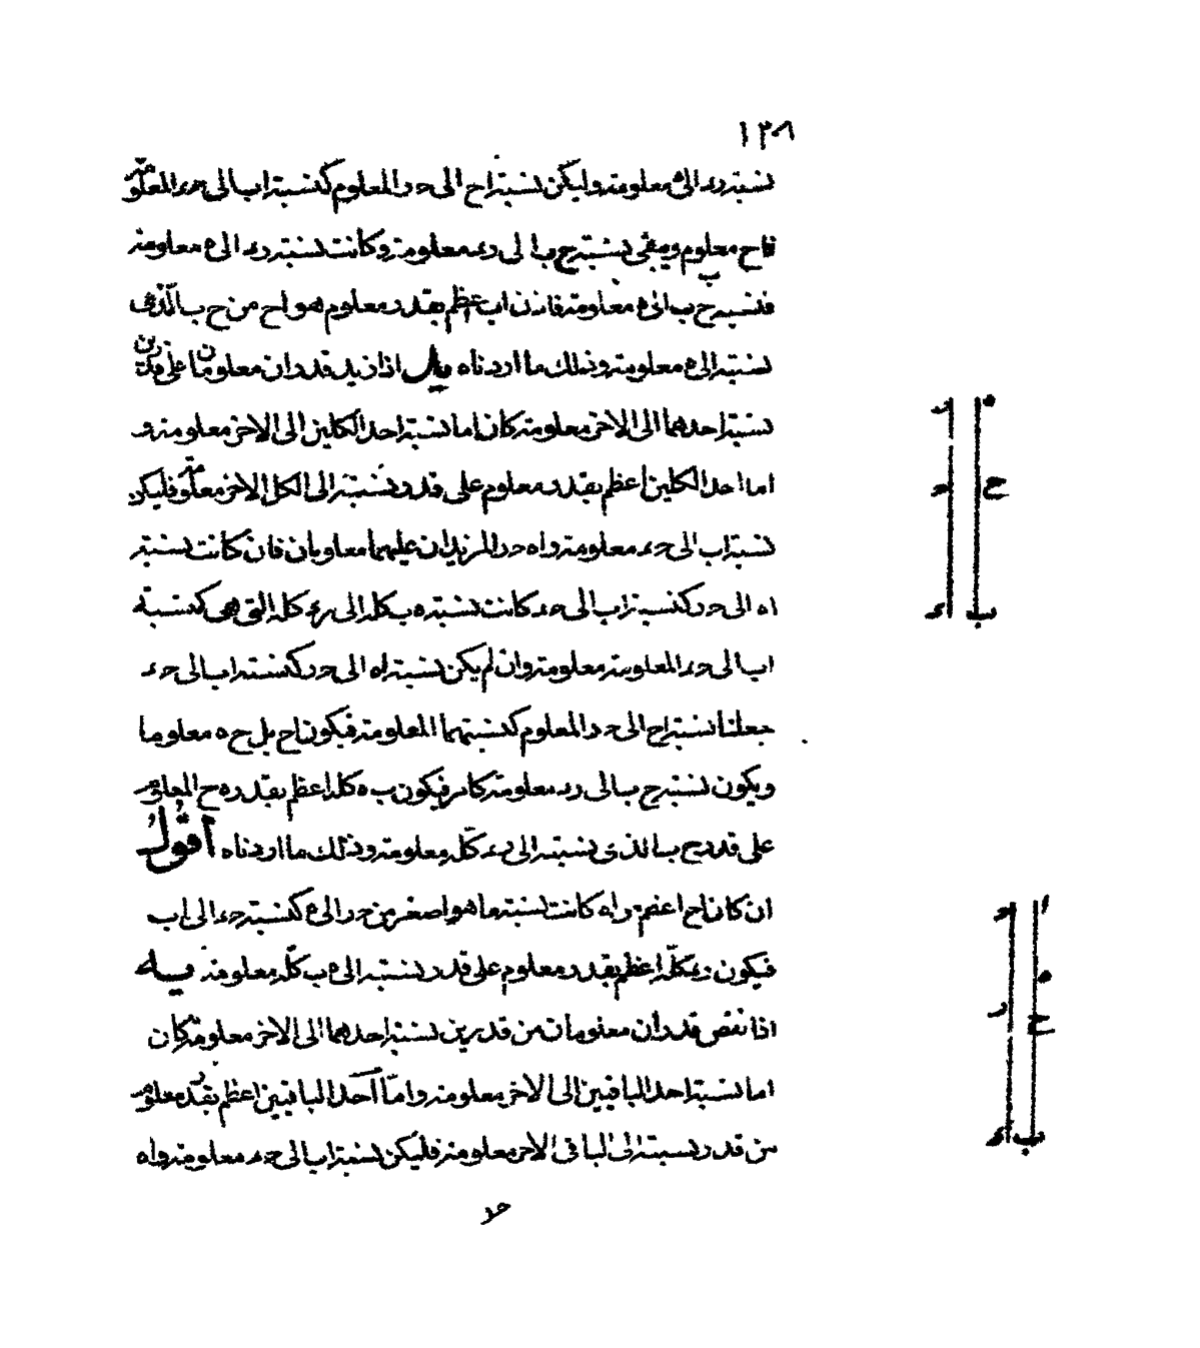 ١٢٨
نسبة د ر الى ع معلومة وليكن نسبة اح الى حد المعلوم كنسبة اب الى حر المعلومة
فاح معلوم ويبقى نسبة ح ب الى د ر معلومة وكانت نسبة د ر الى ع معلومة
فنسبة ح ب الى ع معلومة فاذن اب اعظم بقدر معلوم هو اح من ح ب الذى
نسبته الى ع معلومة وذلك ما اردناه يا اذا زيد قدران معلومان على قدرين
نسبة احدهما الى الاخر معلومة كان اما نسبة احد الكلين الى الاخر معلومة و
اما احد الكلين اعظم بقدر معلوم على قدر نسبته الى الكل الاخر معلومة فليكن
نسبة اب الى حء معلومة واه حر المزيدان عليهما معلومان فان كانت نسبة
اه الى حر كنسبة اب الى حء كانت نسبة ه ب كله الى رء كله التى هى كنسبة
اب الى حء المعلومة معلومة وان لم يكن نسبة اه الى حر كنسبة اب الى حء
جعلنا نسبة اح الى حر المعلوم كنسبتهما المعلومة فيكون اح بل ح ه معلوما
ويكون نسبة ح ب الى رء معلومة كامر فيكون ب ه كله اعظم بقدر ه ح المعلوم
على قدر ح ب الذى نسبته الى رء كله معلومة وذلك ما اردناه اقول
ان كان اح اعظم من اه كانت نسبة ما هو اصغر من حر الى ع كنسبة حء الى اب
فيكون رء كله اعظم بقدر معلوم على قدر نسبته الى ع ب كله معلومة يب
اذا نقص قدران معلومان من قدرين نسبة احدهما الى الاخر معلومة كان
اما نسبة احد الباقيين الى الاخر معلومة واما احد الباقيين اعظم بقدر معلوم
من قدر نسبته الى الباقى الاخر معلومة فليكن نسبة اب الى حء معلومة واه
حر
ه ر
ح ح
ب ء
ا ح
ه
ر
ح
ب ء